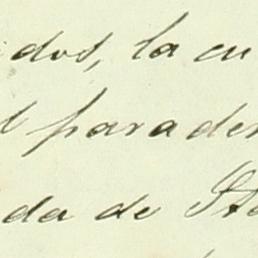 dos, la cu
l parader
da de Sta